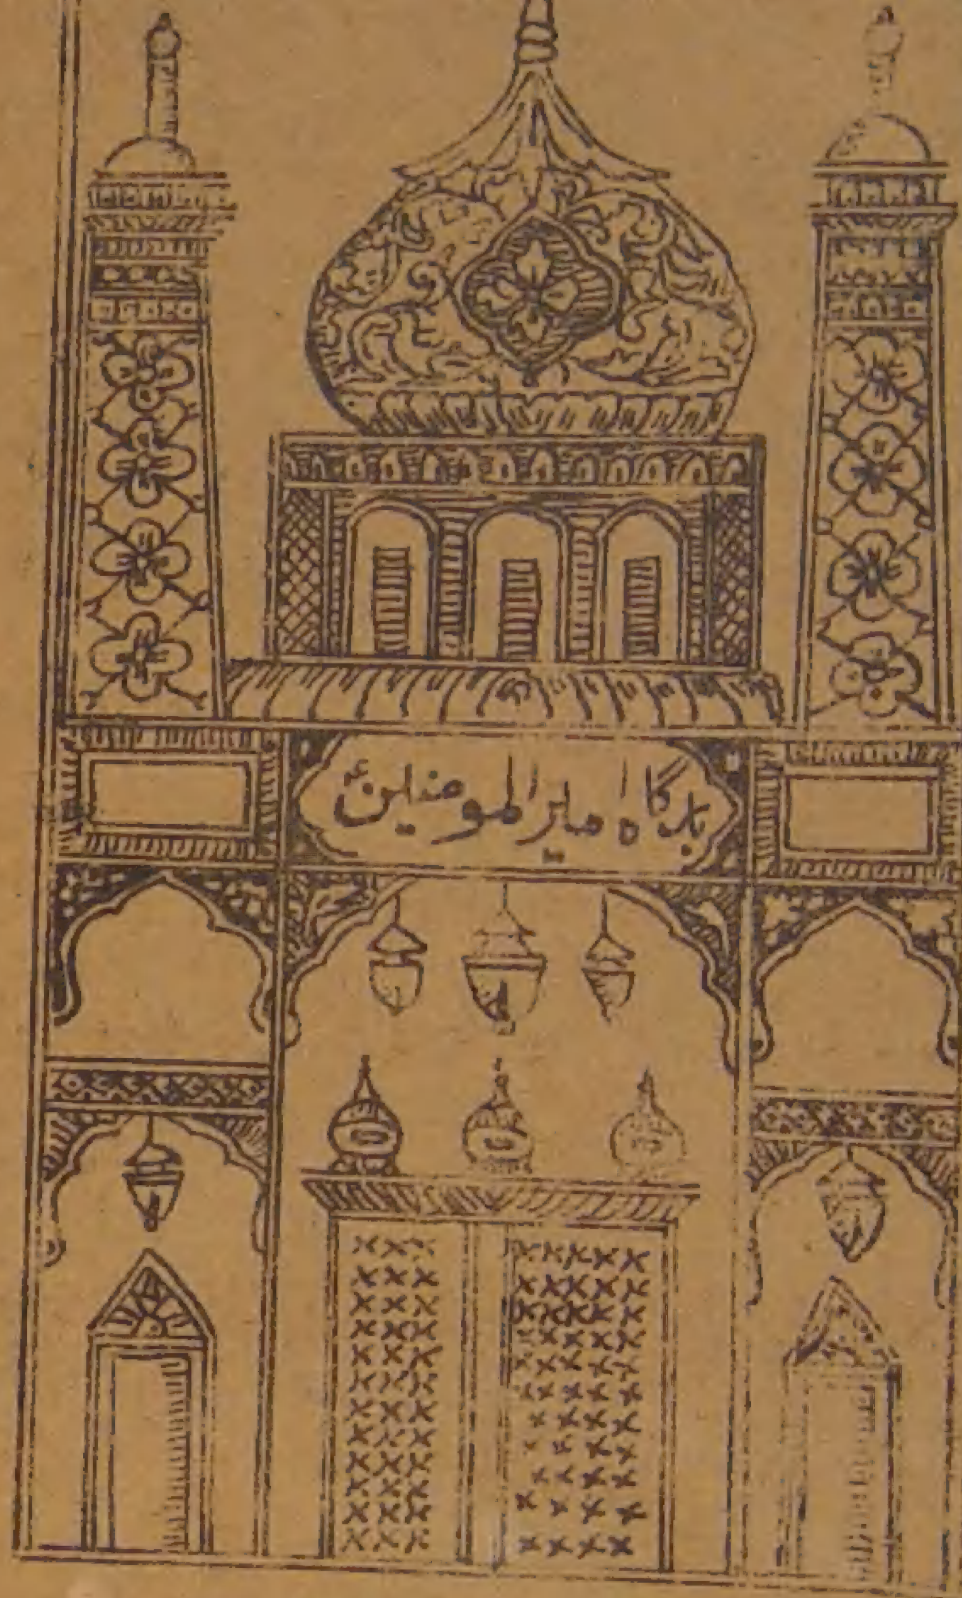 بارگاہ امیرالمومنین ع